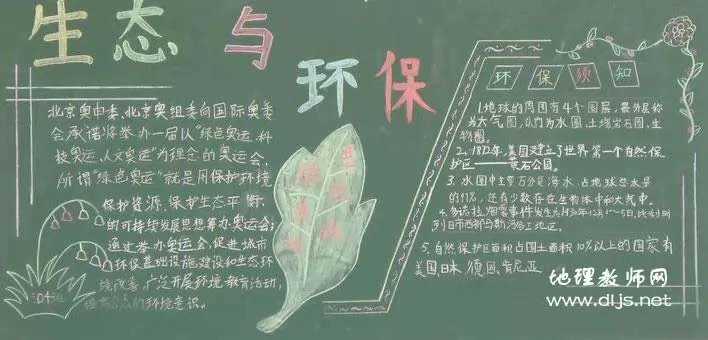 生态与环保
北京奥申委、北京奥组委向国际奥委
会承诺将举办一届以“绿色奥运、科
技奥运、人文奥运”为理念的奥运会,
所谓“绿色奥运”就是用保护环境
保护资源、保护生态平衡
的可持续发展思想筹办奥运会;
通过举办奥运会,促进城市
环保基础设施建设和生态环
境改善,广泛开展环境教育活动,
提高公众的环境意识。
环保须知
1.地球的周围有4个圈层,最外层称
为大气圈,以内为水圈、土壤岩石圈、生
物圈。
2、1872年,美国建立了世界第一个自然保
护区——黄石公园。
3、水圈中主要百分是海水,占地球总水量
的97%,还有少数存在生物体中和大气中。
烟雾事件发生于1930年12月1~5日,比利时
5、自然保护区面积占国土面积10%以上的国家有
美国、日本、德国、肯尼亚
地理教师网
www.dljs.net